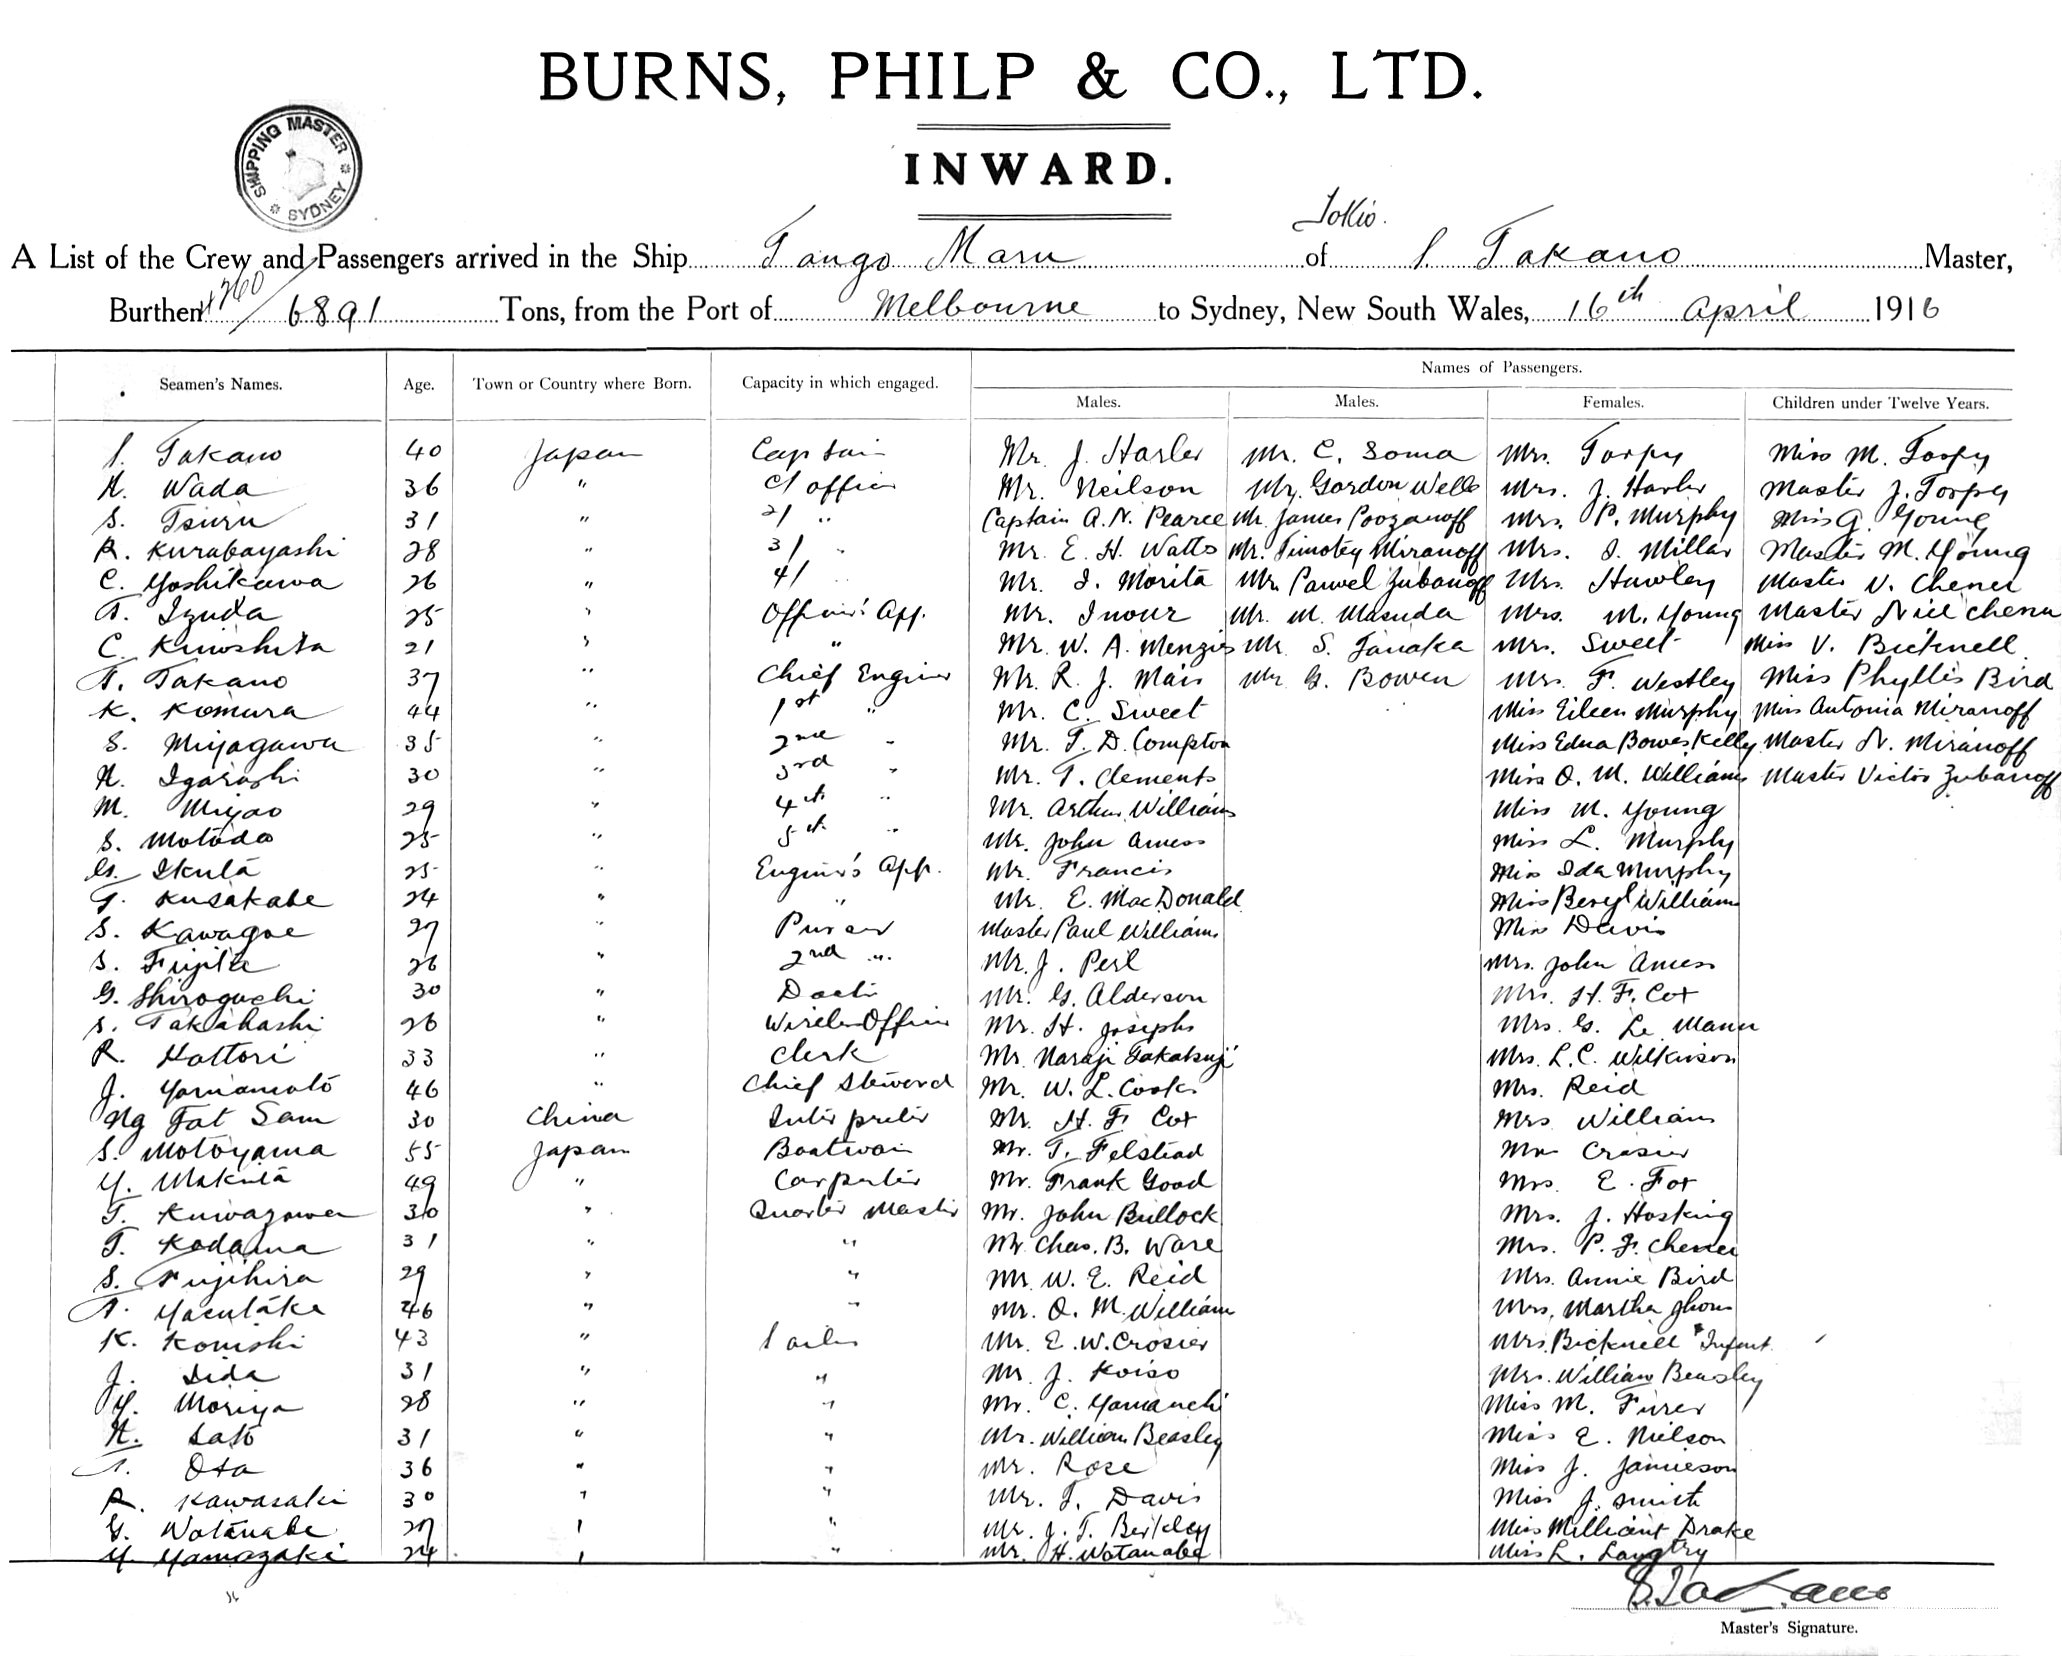 BURNS, PHILP & CO., LTD.
SHIPPING MASTER
SYDNEY
INWARD.
Tokio.
A List of the Crew and Passengers arrived in the Ship Tango Maru of S Takano Master,
Burthen 4760 / 6891 Tons, from the Port of Melbourne to Sydney, New South Wales, 16th April 1916
Names of Passengers.
Seamen's Names. Age. Town or Country where Born. Capacity in which engaged. Males. Males. Females. Children under Twelve Years.
S. Takano 40 Japan Captain Mr. J. Harler Mr. C. Soma Mrs. Torpy Miss M. Torpy
H. Wada 36 " C/ officer Mr. Neilson Mr. Gordon Wells Mrs. J. Harler Master J. Torpy
S. Tsuru 31 " 2/ " Captain A. N. Pearce Mr. James Poozanoff Mrs. P. Murphy Miss G. Young
R. Kurabayashi 28 " 3/ " Mr. E. H. Watts Mr. Timotey Miranoff Mrs. J. Millar Master M. Young
C. Yoshikawa 26 " 4/ " Mr. I. Morita Mr. Pawel Zubanoff Mrs. Hawley Master V. Chener
T. Izuda 25 " Officer's App. Mr. Inouz Mr. M. Masuda Mrs. M. Young Master Niel Chener
C. Kinoshita 21 " " Mr. W. A. Menzies Mr. S. Tanaka Mrs. Sweet Miss V. Bicknell
T. Takano 37 " Chief Engineer Mr. R. J. Mais Mr. G. Bowen Mrs. F. Westley Miss Phyllis Bird
K. Komura 44 " 1st " Mr. C. Sweet Miss Eileen Murphy Miss Antonia Miranoff
S. Miyagawa 35 " 2nd " Mr. T. D. Compton Miss Edna Bowes Kelly Master N. Miranoff
H. Igarashi 30 " 3rd " Mr. T. Clements Miss O. M. Williams Master Victor Zubanoff
M. Miyao 29 " 4th " Mr. Arthur Williams Miss M. Young
S. Motoda 25 " 5th " Mr. John Amess Miss L. Murphy
G. Ikuta 25 " Engineer's App. Mr. Francis Miss Ida Murphy
T. Kusakabe 24 " " Mr. E. MacDonald Miss Beryl Williams
S. Kawagoe 27 " Purser Master Paul Williams Miss Davis
S. Fujita 26 " 2nd " Mr. J. Perl Mrs. John Amess
G. Shiroguchi 30 " Doctor Mr. G. Alderson Mrs. H. F. Cox
S. Takahashi 26 " Wireless Officer Mr. H. Josephs Mrs. G. Le Mann
R. Hattori 33 " Clerk Mr. Naraji Takatsuji Mrs. L. C. Wilkinson
J. Yamamoto 46 " Chief Steward Mr. W. L. Cooks Mrs. Reid
Ng Fat Sam 30 China Interpreter Mr. H. F. Cox Mrs Williams
S. Motoyama 55 Japan Boatswain Mr. T. Felstead Mrs Crosier
Y. Makita 49 " Carpenter Mr. Frank Good Mrs E. Fox
T. Kuwazawa 30 " Quarter Master Mr. John Bullock Mrs. J. Hosking
T. Kodama 31 " " Mr Chas. B. Ware Mrs. P. F. Chener
S. Fujihira 29 " " Mr W. E. Reid Mrs. Annie Bird
T. Yasutake 46 " " Mr. O. M. Williams Mrs. Martha
K. Konishi 43 " Sailor Mr. E. W. Crosier Mrs. Bicknell & Infant
J. Iida 31 " " Mr J. Koiso Mrs. William Beasley
Y. Moriya 28 " " Mr. C. Yamauchi Miss M. Furer
H. Sato 31 " " Mr. William Beasley Miss E. Nielson
T. Ota 36 " " Mr. Rose Miss J. Jamieson
R. Kawasaki 30 " " Mr. T. Davis Miss J. Smith
G. Watanabe 27 " " Mr. J. T. Berkley Miss Millicent Drake
Y. Yamazaki 24 " " Mr. H. Watanabe Miss L. Langtry
S. Takano
Master's Signature.